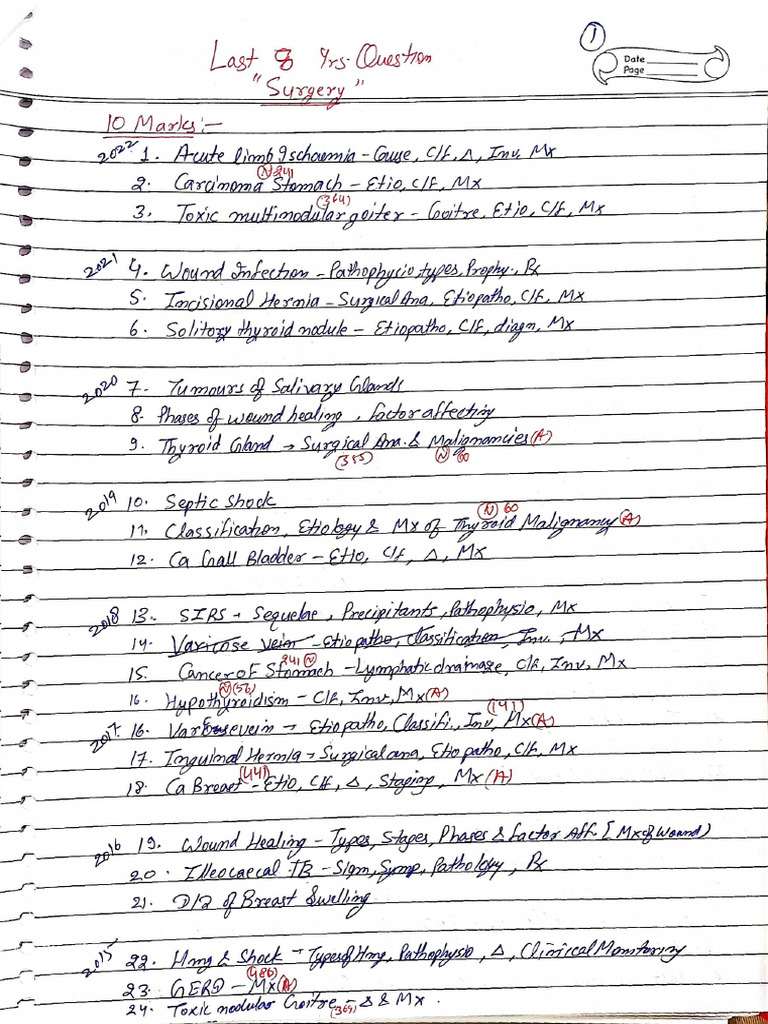 1
Last 8 Yrs. Question
Date
Page
"Surgery"
10 Marks:-
2022 1. Acute limb Ischaemia - Cause, C/f, Δ, Inv. Mx
N 241
2. Carcinoma Stomach - Etio, C/f, Mx
(364)
3. Toxic multinodular goiter - Goitre, Etio, C/f, Mx
2021 4. Wound Infection - Pathophysio, types, Prophy., Rx
5. Incisional Hernia - Surgical Ana, Etiopatho, C/f, Mx
6. Solitory thyroid nodule - Etiopatho, C/f, diagn, Mx
2020 7. Tumours of Salivary Glands
8. Phases of wound healing, factor affecting
9. Thyroid Gland → Surgical Ana. & Malignancies (A)
(355) N 60
N 60
2019 10. Septic Shock
11. Classification, Etiology & Mx of Thyroid Malignancy (A)
12. Ca Gall Bladder - Etio, C/f, Δ, Mx
2018 13. SIRS → Sequelae, Precipitants, Pathophysio, Mx
14. Varicose vein - Etiopatho, Classification, Inv., Mx
241 N
15. Cancer of Stomach - Lymphatic drainage, C/f, Inv, Mx
N (56)
16. Hypothyroidism - C/f, Inv, Mx (A)
(141)
2017 16. Varicose vein → Etiopatho, Classifi., Inv, Mx (A)
17. Inguinal Hernia → Surgical ana, Etiopatho, C/f, Mx
(441)
18. Ca Breast - Etio, C/f, Δ, Staging, Mx (A)
2016 19. Wound Healing - Types, Stages, Phases & factor Aff. [Mx of Wound)
20. Illeocaecal TB - Sign, Symp, Pathology, Rx
21. D/D of Breast Swelling
2015 22. Hmg & Shock → Types of Hmg, Pathophysio, Δ, Clinical Monitoring
(486)
23. GERD - Mx (A)
24. Toxic nodular Goitre - Δ & Mx.
(364)